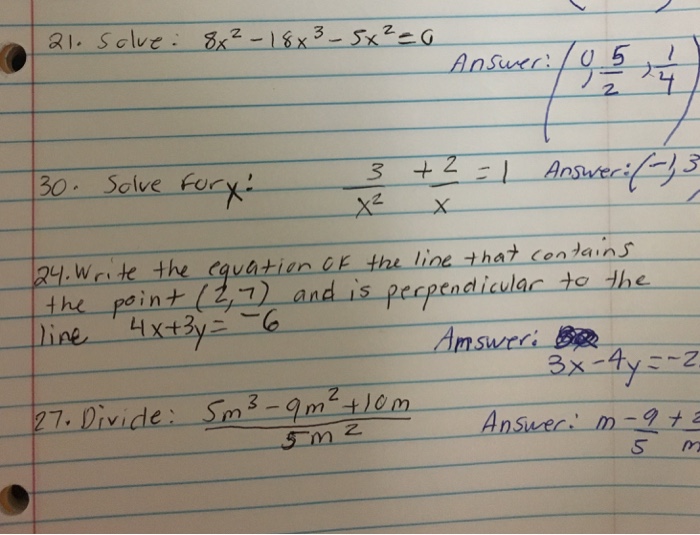 21. Solve: 8x² - 18x³ - 5x² = 0
Answer: (0, 5/2, 1/4)
30. Solve for x: 3/x² + 2/x = 1 Answer: (-1, 3
24. Write the equation of the line that contains
the point (2,7) and is perpendicular to the
line 4x+3y= -6
Amswer:
3x-4y=-2
27. Divide: 5m³-9m²+10m / 5m² Answer: m - 9/5 + 2/m